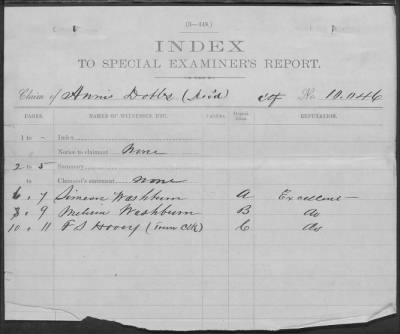 (3—448.)
INDEX
TO SPECIAL EXAMINER'S REPORT.
Claim of Annis Dobbs (Dec'd) Ctf No. 10.046
PAGES. NAMES OF WITNESSES, ETC. Exhibit REPUTATION.
1 to - Index
Notice to claimant None
2 to 5 Summary
to Claimant's statement None
6 " 7 Simeon Washburn A Excellent
8 " 9 Melvin Washburn B do
10 " 11 F S Hovey (Town Clk) C do